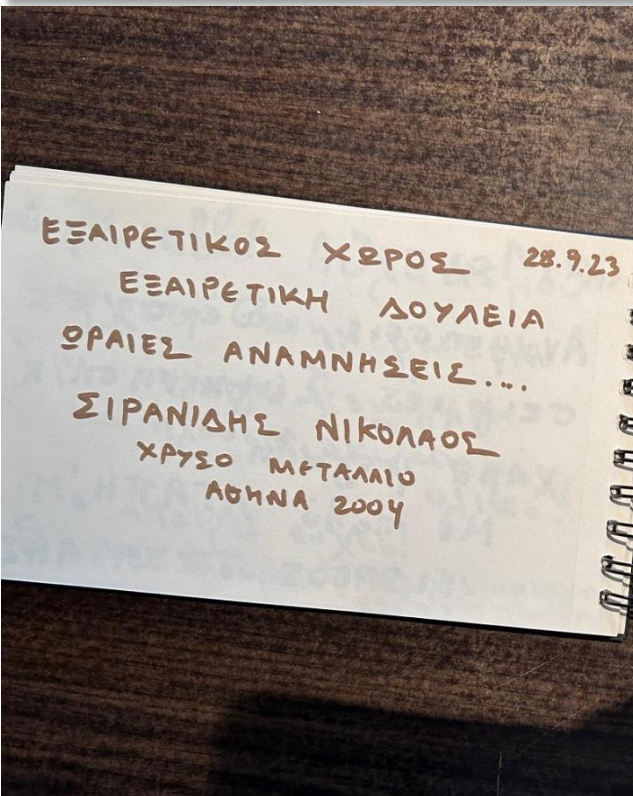 ΕΞΑΙΡΕΤΙΚΟΣ ΧΩΡΟΣ 28.9.23
ΕΞΑΙΡΕΤΙΚΗ ΔΟΥΛΕΙΑ
ΩΡΑΙΕΣ ΑΝΑΜΝΗΣΕΙΣ....
ΣΙΡΑΝΙΔΗΣ ΝΙΚΟΛΑΟΣ
ΧΡΥΣΟ ΜΕΤΑΛΛΙΟ
ΑΘΗΝΑ 2004